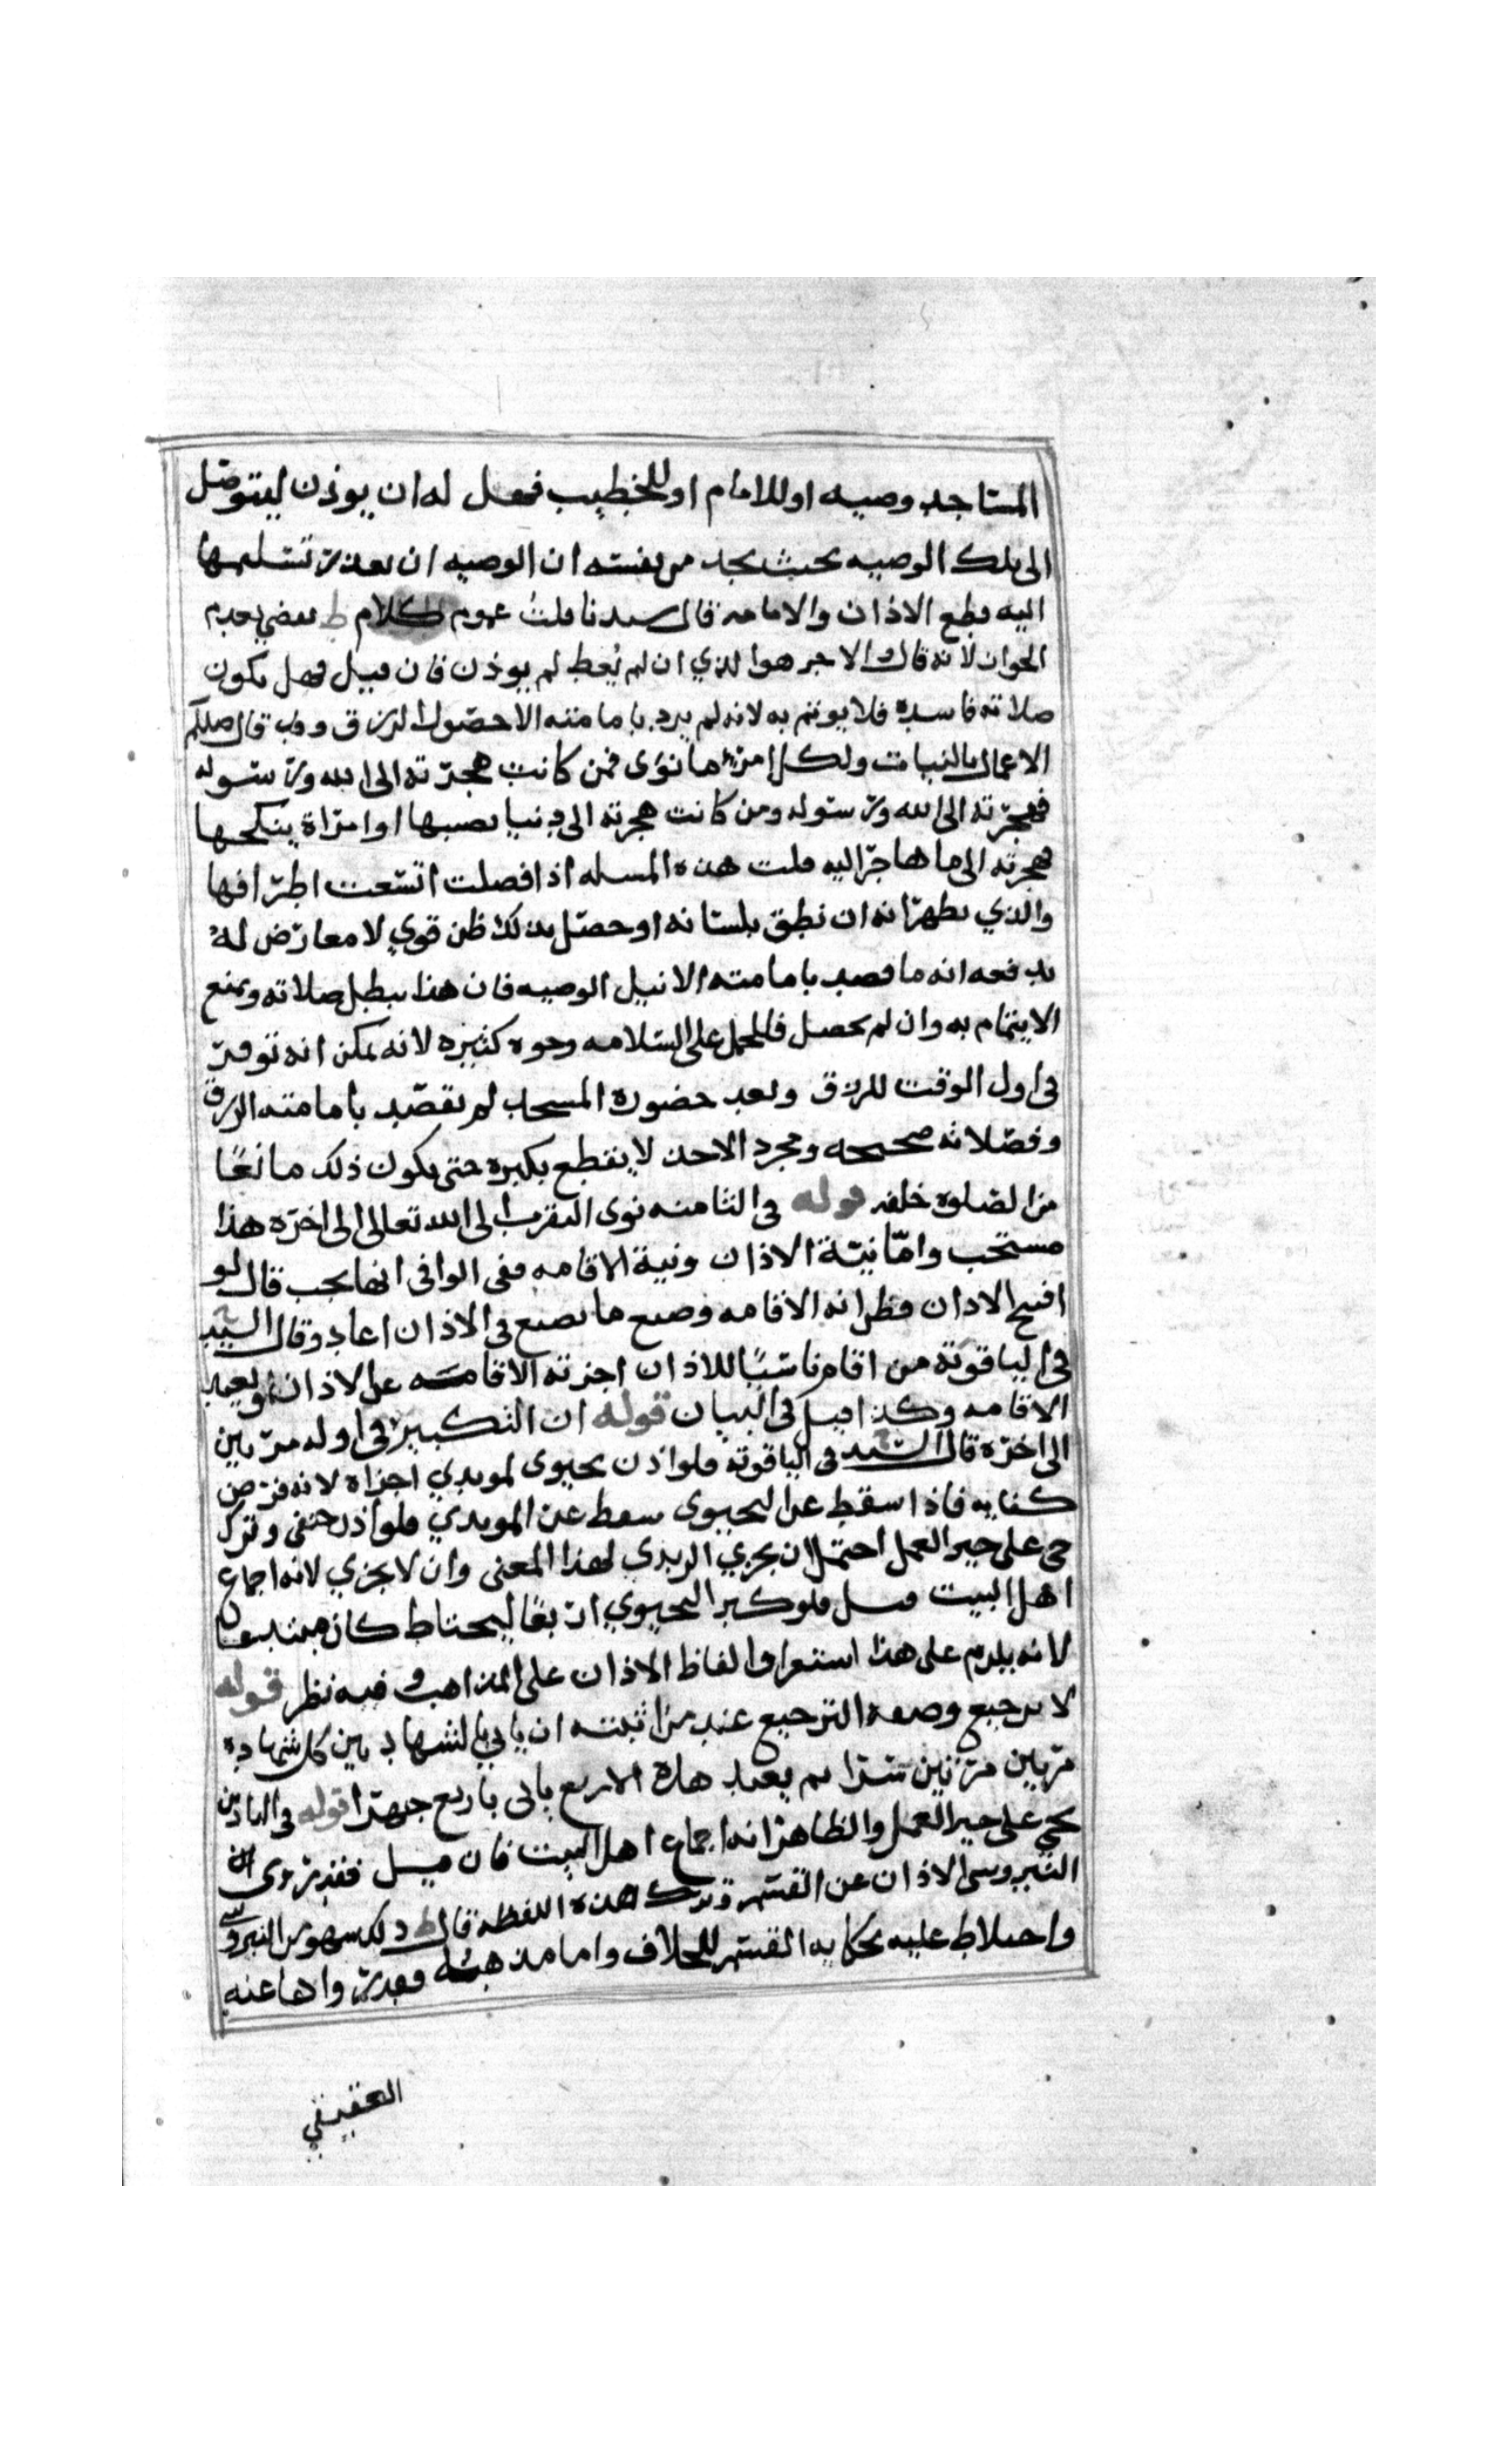 المساجد وصيه او للامام او للخطيب فهل له ان يوذن ليتوصل
الى تلك الوصيه بحيث يجد من نفسه ان الوصيه ان تعذر تسليمها
اليه قطع الاذان والامامه قال سيدنا قلت عموم كلام ط يقضي بعدم
الجواز لانه قال الاجر هو الذي ان لم يُعط لم يوذن فان قيل فهل يكون
صلاته فاسدة فلا يوتم به لانه لم يرد بامامته الا حصول الرزق وقد قال صللم
الاعمال بالنيات ولكل امرء ما نوى فمن كانت هجرته الى الله ورسوله
فهجرته الى الله ورسوله ومن كانت هجرته الى دنيا يصيبها او امراة ينكحها
فهجرته الى ما هاجر اليه قلت هذه المسله اذا فصلت اتسعت اطرافها
والذي يظهر انه ان نطق بلسانه او حصل بذلك ظن قوي لا معارض له
يدفعه انه ما قصد بامامته الا نيل الوصيه فان هذا يبطل صلاته ويمنع
الايتمام به وان لم يحصل فللحمل على السلامه وجوه كثيره لانه يمكن انه توفر
في اول الوقت للرزق وبعد حضوره المسجد لم يقصد بامامته الرزق
وفصلاته صحيحه ومجرد الاخذ لا يقطع بكبره حتى يكون ذلك مانعًا
من الصلوة خلفه قوله في الثامنه نوى التقرب الى الله تعالى الى اخره هذا
مستحب وامّا نيّة الاذان ونية الاقامه ففي الوافي انها يجب قال لو
افتتح الاذان فظن انه الاقامه فصنع ما يصنع في الاذان اعاد وقال السيد
في الياقوتة من اقام ناسيًا للاذان اجزته الاقامه عن الاذان ويعيد
الاقامه وكذا قيل في البيان قوله ان التكبير في اوله مرتين
الى اخره قال السيد في الياقوته فلو اذن يحيوى لمويدي اجزاه لانه فرض
كفايه فاذا سقط عن اليحيوى سقط عن المويدي فلو اذن حنفي وترك
حي على خير العمل احتمل ان يجزي الزيدي لهذا المعنى وان لا يجزي لانه اجماع
اهل البيت قيل فلو كبر اليحيوي اربعًا ليحتاط كان مبتدعا
لانه يلزم على هذا استغراق الفاظ الاذان على المذاهب وفيه نظر قوله
لا ترجيع وصفة الترجيع عند من اثبته ان ياتي بالشهادتين كل شهادة
مرتين مرتين سرا ثم يعيد هذه الاربع ياتي باربع جهرا قوله في التاذين
بحي على خير العمل والظاهر انه اجماع اهل البيت فان قيل فقد روى ابن
النيروسي الاذان عن القسم وترك هذه اللفظه قال ط ذلك سهو من النيروسي
واختلاط عليه بحكاية القسم للخلاف واما مذهبه فقد رواها عنه
العقيقي